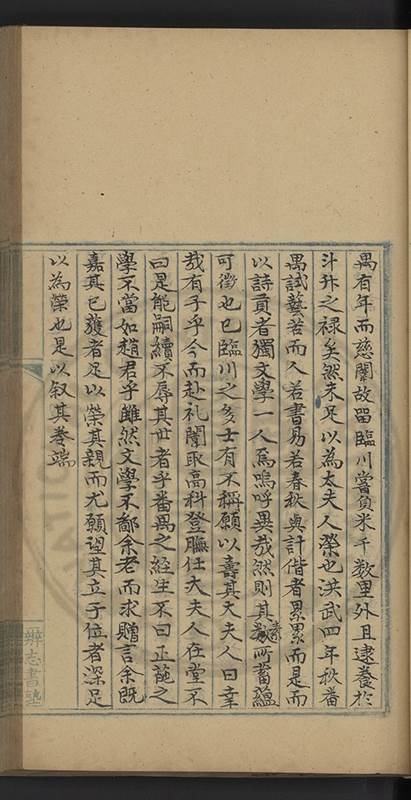 禺有年而慈闈故畱臨川嘗負米千数里外且逮養於
斗升之祿矣然未足以為太夫人榮也洪武四年秋畨
禺試藝若而人若書易若春秋與計偕者累累而是而
以詩貢者獨文學一人焉嗚呼異哉然則其素所蓄藴
可徵也已臨川之多士有不稱願以壽其大夫人曰幸
哉有子乎今而赴礼闈取高科登膴仕大夫人在堂不
曰是能嗣續不辱其世者乎畨禺之經生不曰正葩之
學不當如趙君乎雖然文學不鄙余老而求贈言余既
嘉其已獲者足以榮其親而尤願望其立于位者深足
以為榮也是以叙其卷端
辨志書塾